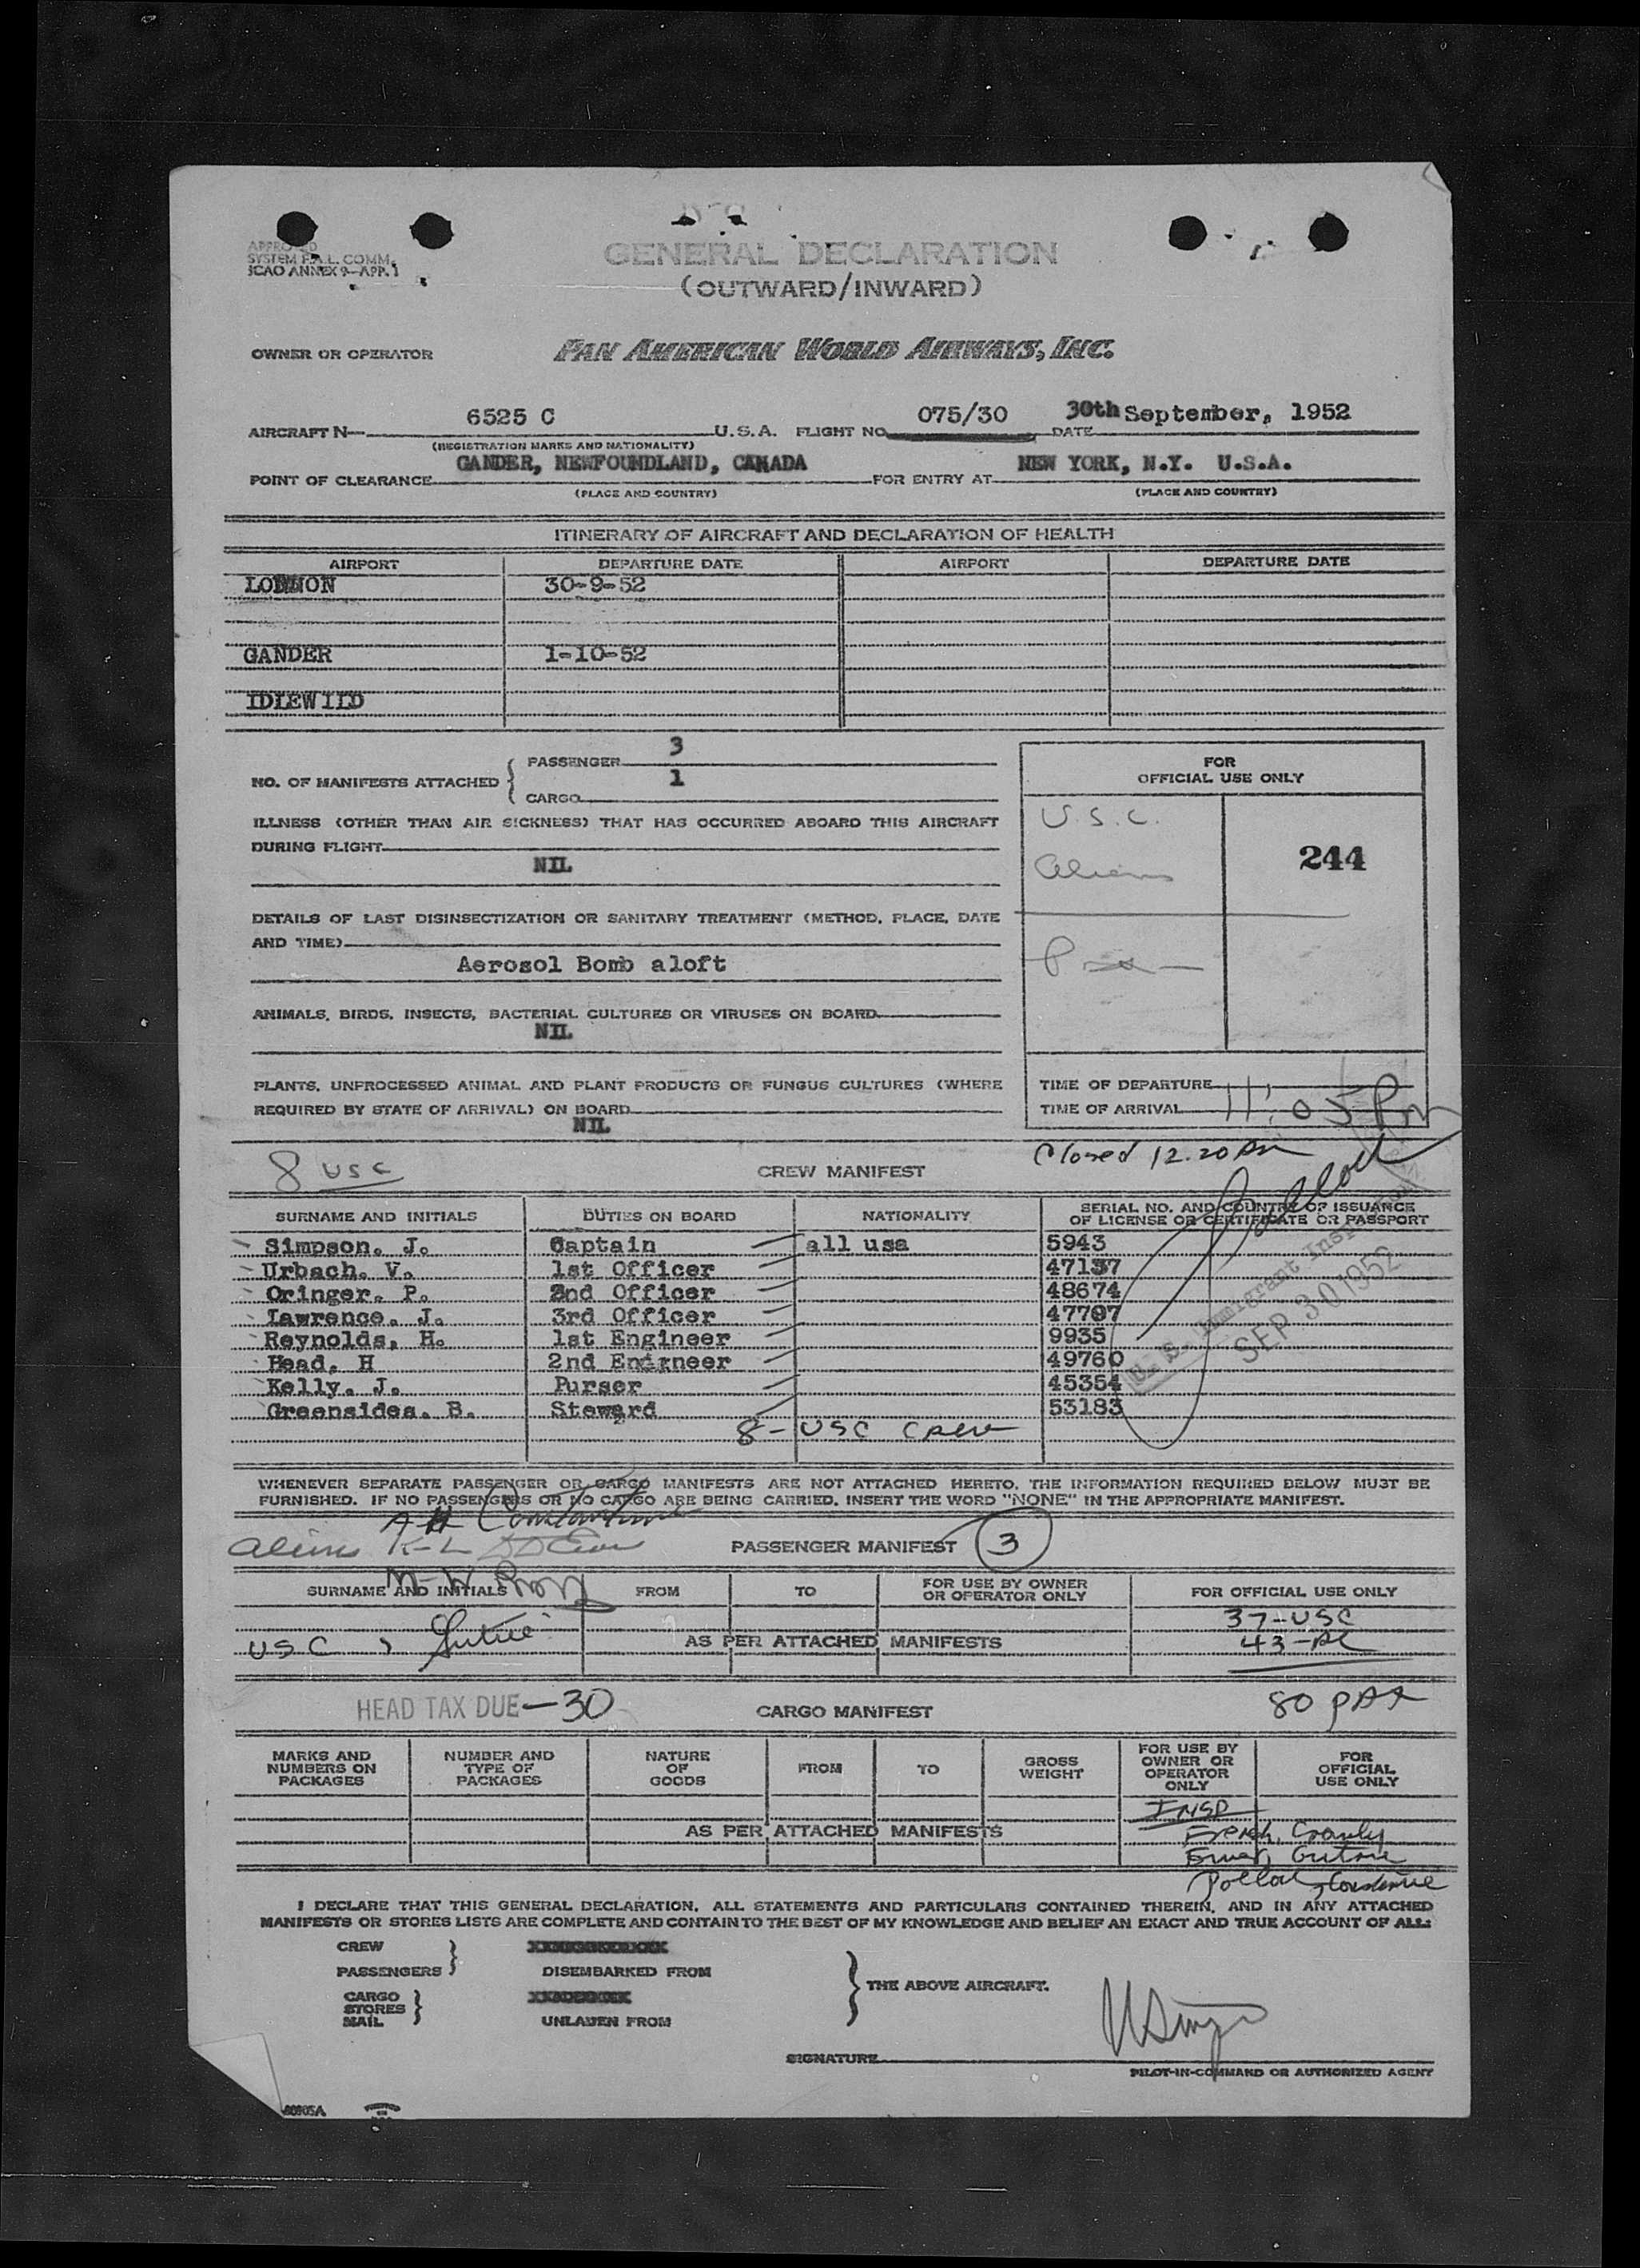 APPROVED
SYSTEM F.A.L. COMM.
ICAO ANNEX 9—APP. 1
GENERAL DECLARATION
(OUTWARD/INWARD)
OWNER OR OPERATOR PAN AMERICAN WORLD AIRWAYS, INC.
AIRCRAFT N— 6525 C U.S.A. FLIGHT NO. 075/30 DATE 30th September, 1952
(REGISTRATION MARKS AND NATIONALITY)
POINT OF CLEARANCE GANDER, NEWFOUNDLAND, CANADA FOR ENTRY AT NEW YORK, N.Y. U.S.A.
(PLACE AND COUNTRY) (PLACE AND COUNTRY)
ITINERARY OF AIRCRAFT AND DECLARATION OF HEALTH
AIRPORT DEPARTURE DATE AIRPORT DEPARTURE DATE
LONDON 30-9-52
GANDER 1-10-52
IDLEWILD
NO. OF MANIFESTS ATTACHED { PASSENGER 3
CARGO 1
ILLNESS (OTHER THAN AIR SICKNESS) THAT HAS OCCURRED ABOARD THIS AIRCRAFT
DURING FLIGHT
NIL
DETAILS OF LAST DISINSECTIZATION OR SANITARY TREATMENT (METHOD, PLACE, DATE
AND TIME)
Aerosol Bomb aloft
ANIMALS, BIRDS, INSECTS, BACTERIAL CULTURES OR VIRUSES ON BOARD
NIL
PLANTS, UNPROCESSED ANIMAL AND PLANT PRODUCTS OR FUNGUS CULTURES (WHERE
REQUIRED BY STATE OF ARRIVAL) ON BOARD
NIL
FOR
OFFICIAL USE ONLY
U.S.C.
244
aliens
TIME OF DEPARTURE
TIME OF ARRIVAL 11:05 PM
Closed 12.20 AM
8 USC
CREW MANIFEST
SURNAME AND INITIALS DUTIES ON BOARD NATIONALITY SERIAL NO. AND COUNTRY OF ISSUANCE
OF LICENSE OR CERTIFICATE OR PASSPORT
Simpson. J. Captain all usa 5943
Urbach. V. 1st Officer 47137
Oringer. P. 2nd Officer 48674
Lawrence. J. 3rd Officer 47707
Reynolds, H. 1st Engineer 9935
Head, H 2nd Engineer 49760
Kelly. J. Purser 45354
Greensides. B. Steward 53183
U. S. Immigrant Inspector
SEP 30 1952
8- USC Crew
WHENEVER SEPARATE PASSENGER OR CARGO MANIFESTS ARE NOT ATTACHED HERETO, THE INFORMATION REQUIRED BELOW MUST BE
FURNISHED. IF NO PASSENGERS OR NO CARGO ARE BEING CARRIED, INSERT THE WORD "NONE" IN THE APPROPRIATE MANIFEST.
A-H
aliens K-L
PASSENGER MANIFEST 3
M-W
SURNAME AND INITIALS FROM TO FOR USE BY OWNER
OR OPERATOR ONLY FOR OFFICIAL USE ONLY
37-USC
USC
AS PER ATTACHED MANIFESTS
43-AL
HEAD TAX DUE—30
CARGO MANIFEST
80 PAX
MARKS AND
NUMBERS ON
PACKAGES
NUMBER AND
TYPE OF
PACKAGES
NATURE
OF
GOODS
FROM TO
GROSS
WEIGHT
FOR USE BY
OWNER OR
OPERATOR
ONLY
FOR
OFFICIAL
USE ONLY
INSP
AS PER ATTACHED MANIFESTS
I DECLARE THAT THIS GENERAL DECLARATION, ALL STATEMENTS AND PARTICULARS CONTAINED THEREIN, AND IN ANY ATTACHED
MANIFESTS OR STORES LISTS ARE COMPLETE AND CONTAIN TO THE BEST OF MY KNOWLEDGE AND BELIEF AN EXACT AND TRUE ACCOUNT OF ALL:
CREW
PASSENGERS } DISEMBARKED FROM
CARGO
STORES
MAIL } UNLADEN FROM
} THE ABOVE AIRCRAFT.
SIGNATURE
PILOT-IN-COMMAND OR AUTHORIZED AGENT